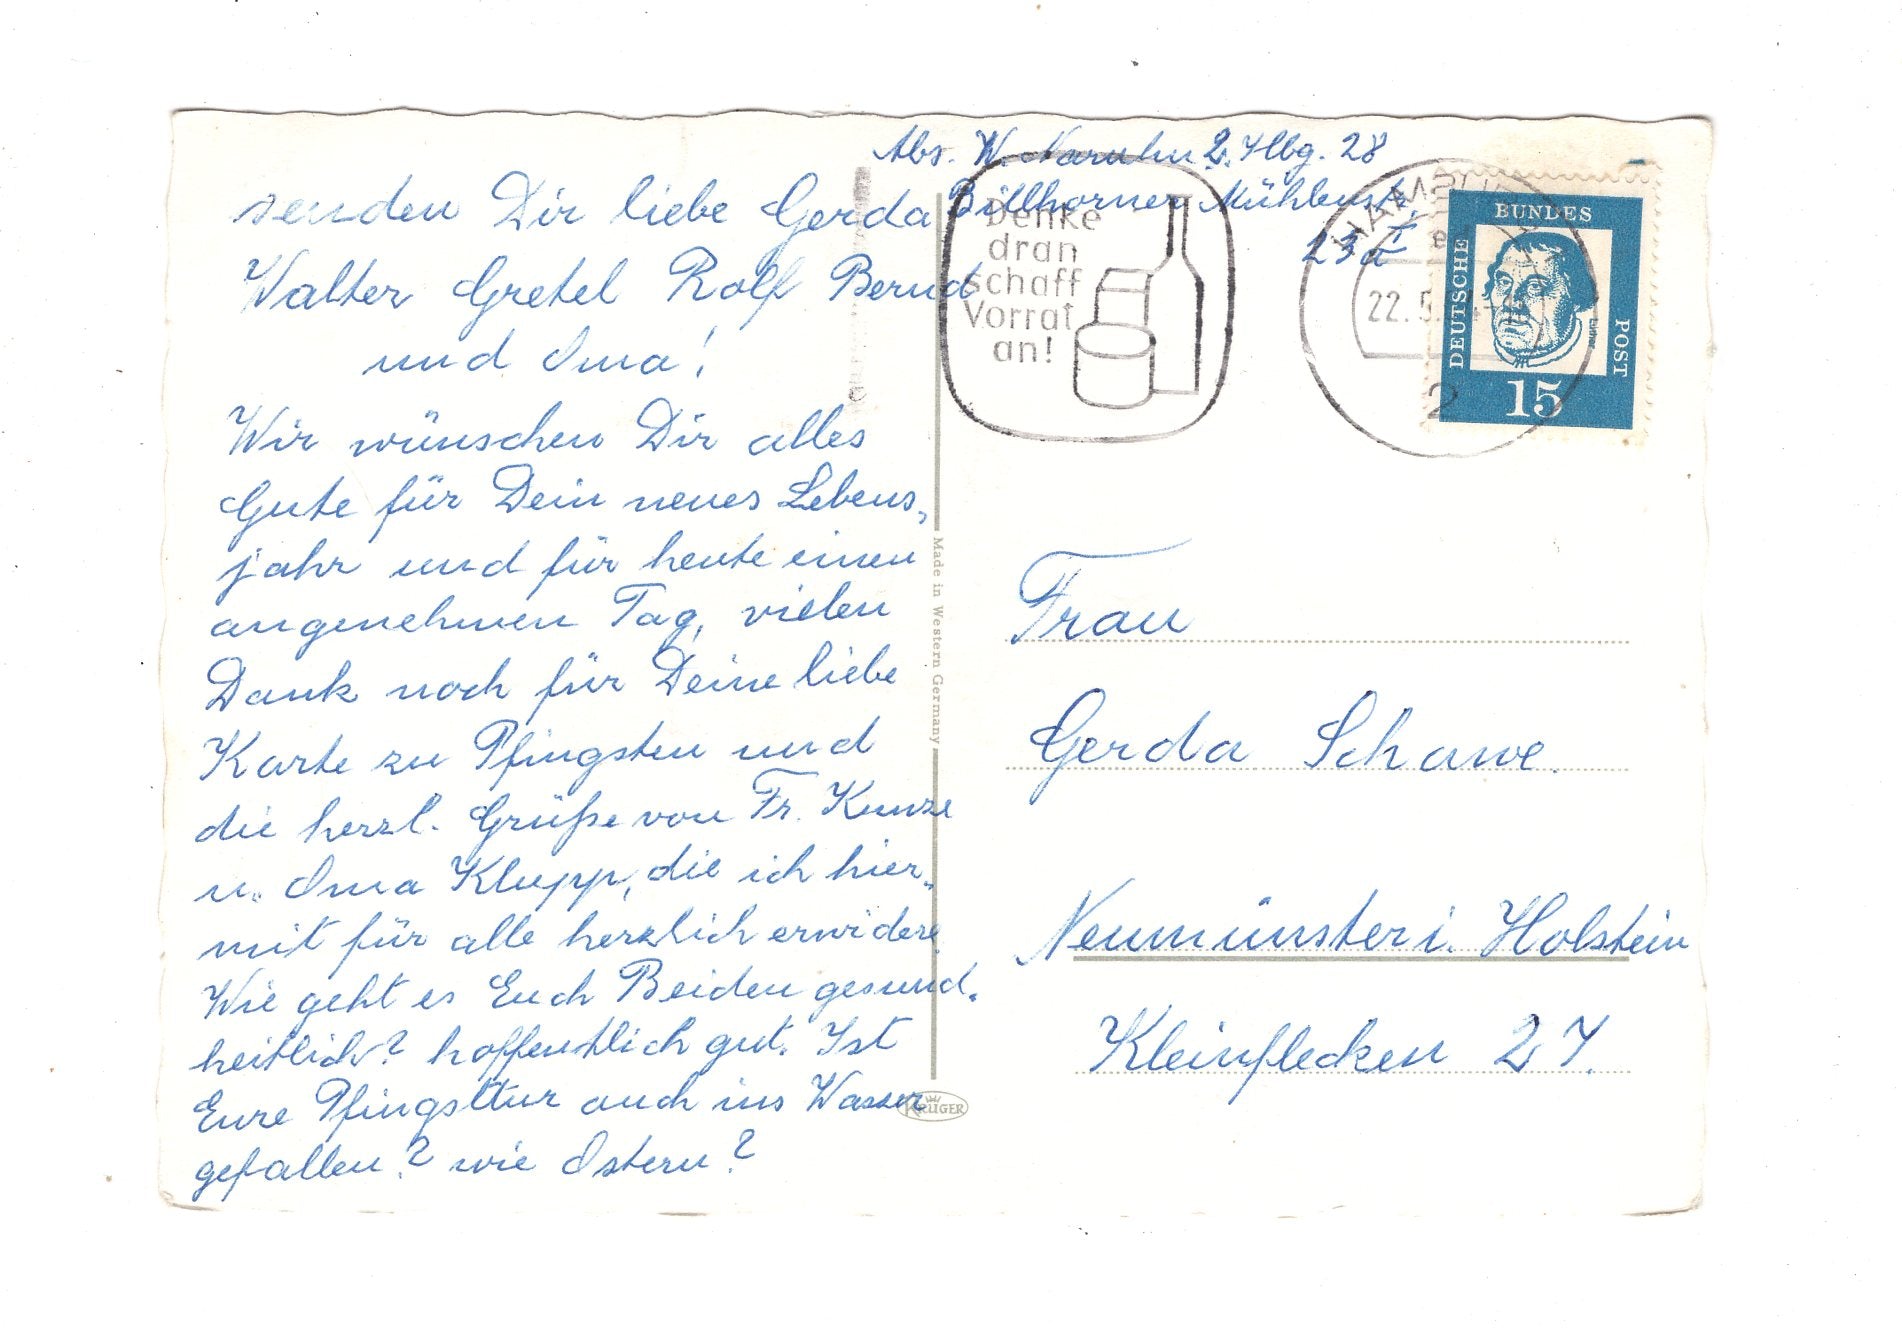 senden Dir liebe Gerda
Walter Gretel Rolf Bernd
und Oma!
Wir wünschen Dir alles
Gute für Dein neues Lebens-
jahr und für heute einen
angenehmen Tag, vielen
Dank noch für Deine liebe
Karte zu Pfingsten und
die herzl. Grüße von Fr. Kunze
u. Oma Klupp, die ich hier-
mit für alle herzlich erwidere
Wie geht es Euch Beiden gesund-
heitlich? hoffentlich gut. Ist
Eure Pfingsttur auch ins Wasser
gefallen? wie Ostern?
Abs. W. 2 Hbg. 28
Billhorner Mühlenstr.
23a I
Denke
dran
schaff
Vorrat
an!
HAMBURG
22.5.
2
DEUTSCHE
BUNDES
POST
Luther
15
Made in Western Germany
KRÜGER
Frau
Gerda Schawe.
Neumünster i. Holstein
Kleinflecken 27.